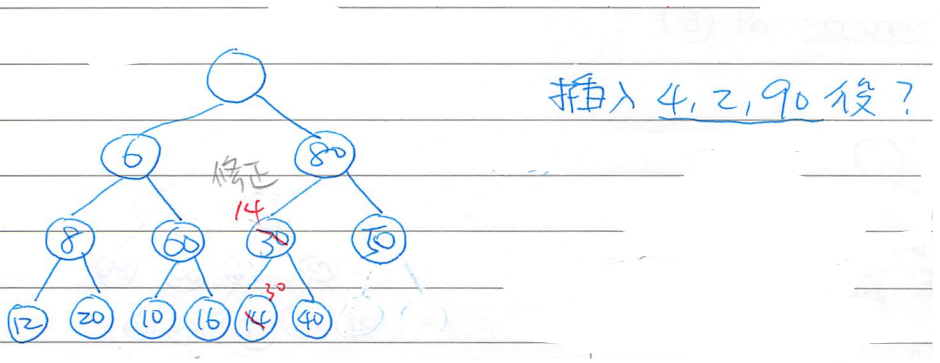 插入 4, 2, 90 後?
6 80
修正
14
8 60 30 50
30
12 20 10 16 14 40